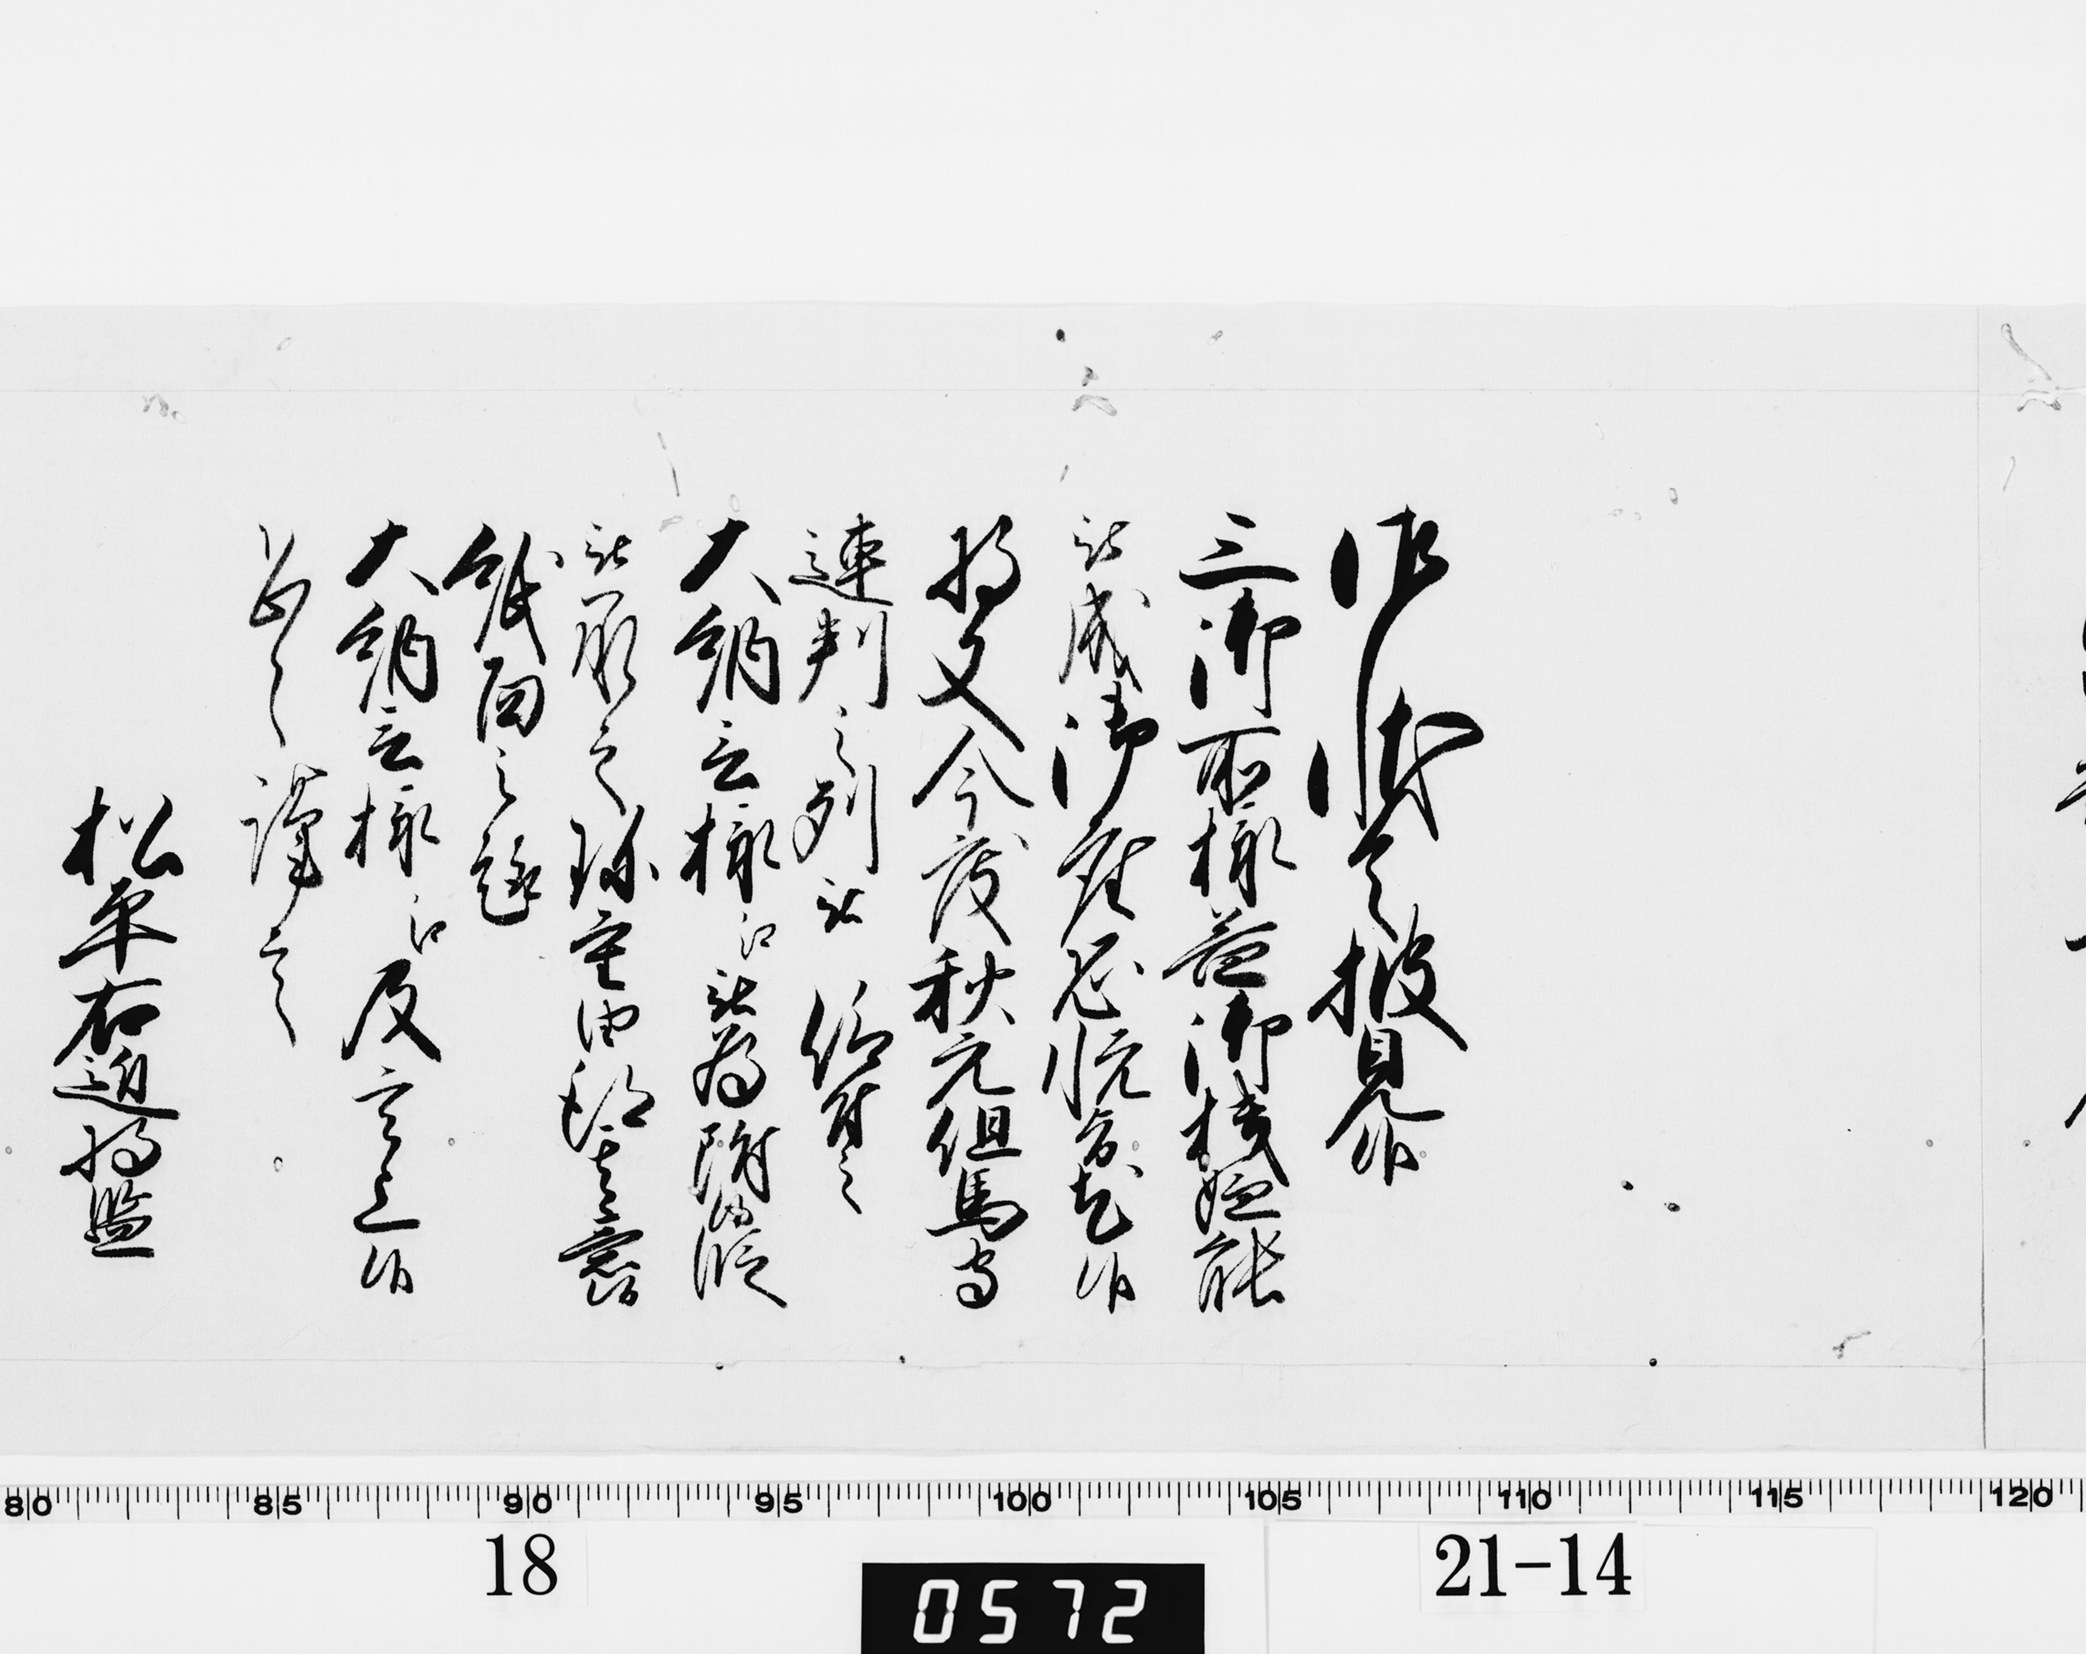 御状令披見候
三御所様益御機嫌能
被成御座恐悦旨尤候
将又今度秋元但馬守
連判之列被 仰付之
大納言様江被為附候段
被承之珍重由得其意候
紙面之趣
大納言様江及言上候
恐々謹言
松平右近将監
80 85 90 95 100 105 110 115 120
18
0572
21-14